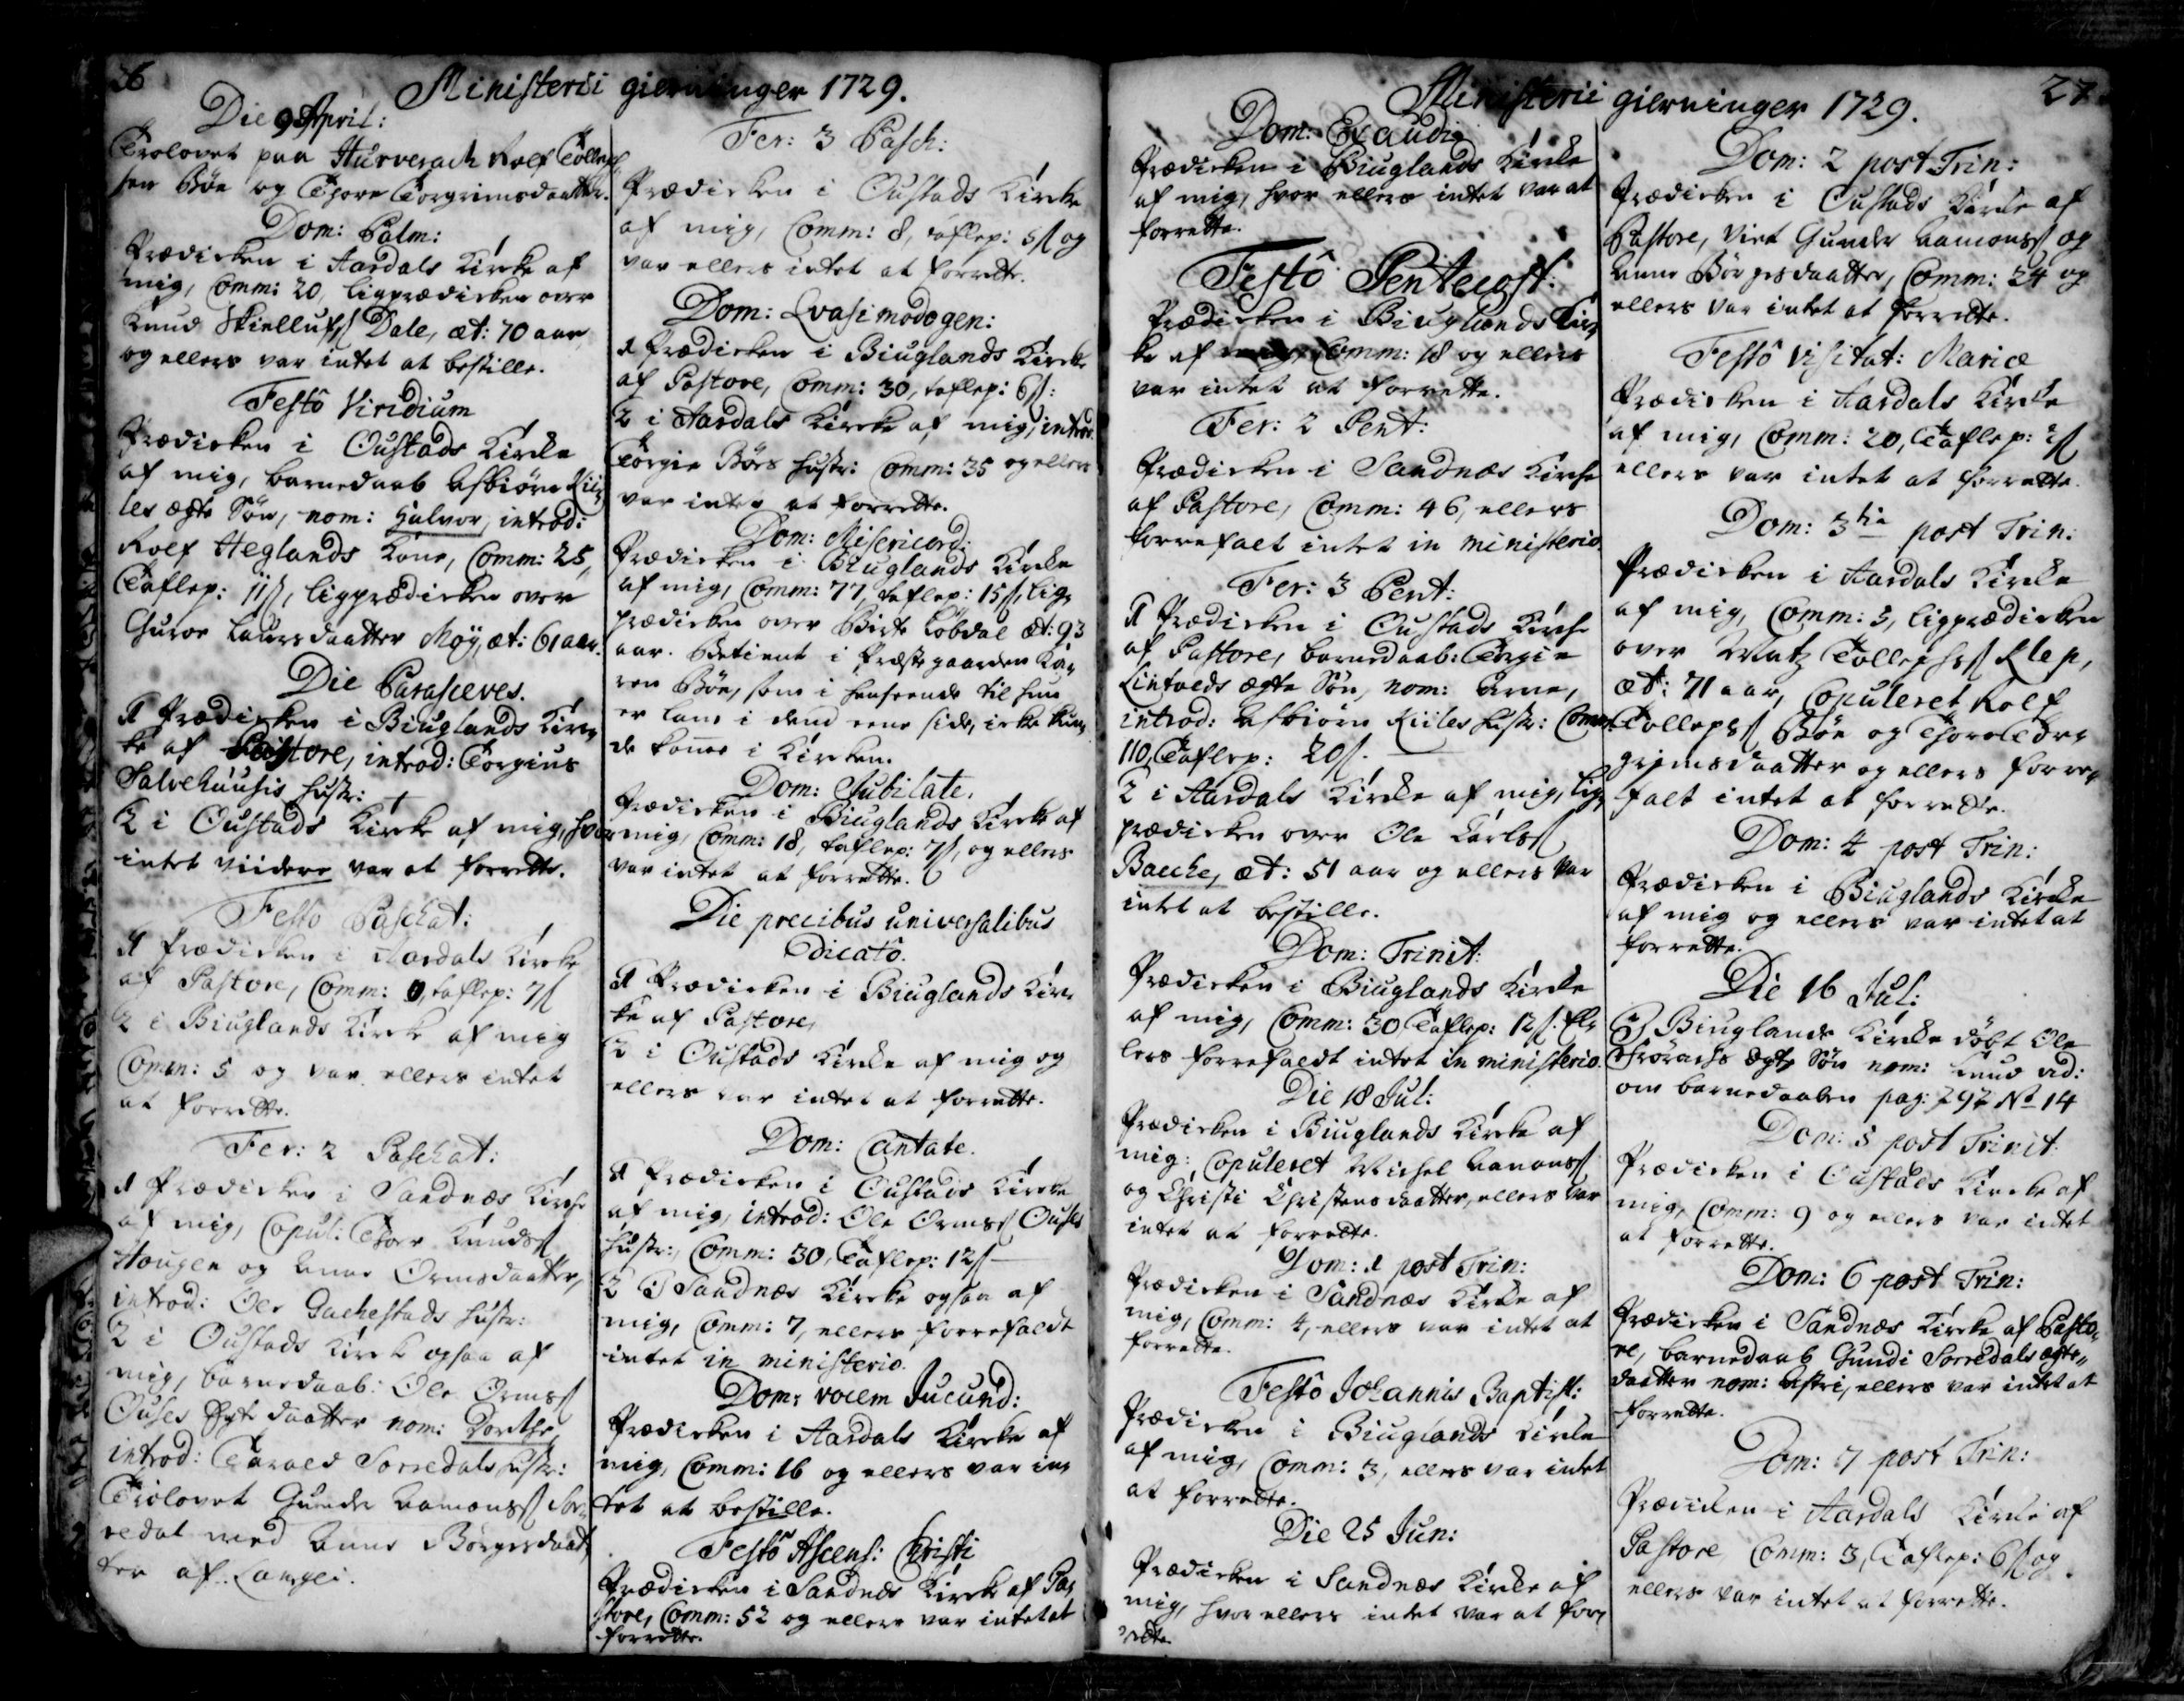 26
Ministerii gierninger 1729.
Die 9 April:
Trolovet paa Hurverack Rolf Tolleph
sen Bøe og Thore Torgrimsdaatter.
Dom: Palm:
Prædicken i Aardals Kircke af
mig, Comm: 20, ligprædicken over
Knud Skiellufs Dale, æt: 70 aar
og ellers var intet at bestille.
Festô Viridium
Prædicken i Oustads Kircke
af mig, barnedaab Asbiørn Rii
les ægte Søn, nom: Halvor, introd:
Rolf Heglands Kone, Comm: 25,
Taflep: 11 s, ligprædicken over
Guroe Laursdaatter Møÿ, æt: 61 aar.
Die Parasceves.
1 Prædicken i Biuglands Kirc
ke af Pastore, introd: Torgius
Salvehuusis hustr:
2 i Oustads Kircke af mig, hvor
intet viidere var at forrette.
Festo Paschat:
1 Prædicken i Aardals Kircke
af Pastore, Comm: 9, taflep: 7 s
2 i Biuglands Kircke af mig
Comm: 5 og var ellers intet
at forrette.
Fer: 2 Paschat:
1 Prædicken i Sandnæs Kircke
af mig, Copul: Thore Knuds
Hougen og Anne Ormsdaatter,
introd: Ole Gachestads hustr:
2 i Oustads Kircke ogsaa af
mig, barnedaab: Ole Orms
Ouses Ægte daatter nom: Dorthe,
introd: Tarald Sorredals hustr:
Trolovet Gunder Aamons Sor
redal med Anne Børgesdaat
ter af Langei.
Fer: 3 Pasch:
Prædicken i Oustads Kircke
af mig, Comm: 8, taflep: 5 s og
var ellers intet at forrette.
Dom: Qvasimodogen:
1 Prædicken i Biuglands Kircke
af Pastore, Comm: 30, taflep: 6 s:
2 i Aardals Kircke af mig, introd:
Torgie Børs hustr: Comm: 35 og ellers
var intet at forrette.
Dom: Misericord:
Prædicken i Biuglands Kircke
af mig, Comm: 77, taflep: 15 s, lig
prædicken over Birte Løbdal æt: 93
aar. Betient i Præstegaarden Ka
ren Bøe, som i henseende til hun
er lam i dend eene side, icke kun
de komme i Kircken.
Dom: Jubilate.
Prædicken i Biuglands Kircke af
mig, Comm: 18, taflep: 7 s, og ellers
var intet at forrette.
Die precibus universalibus
Dicatô.
1 Prædicken i Biuglands Kirc
ke af Pastore,
2 i Oustads Kircke af mig og
ellers var intet at forrette.
Dom: Cantate.
1 Prædicken i Oustads Kircke
af mig, introd: Ole Orms Ouses
hustr:, Comm: 30, Taflep: 12 s
2 I Sandnæs Kircke ogsaa af
mig, Comm: 7, ellers forrefaldt
intet in ministerio.
Dom: vocem Jucund:
Prædicken i Aardals Kircke af
mig, Comm: 16 og ellers var in
tet at bestille.
Festô Ascens: Christi
Prædicken i Sandnæs Kircke af Pa
store, Comm: 52 og ellers var intet at
forrette.
27
Ministerii gierninger 1729.
Dom: Exaudi
Prædicken i Biuglands Kircke
af mig, hvor ellers intet var at
forrette.
Festô Pentecost:
Prædicken i Biuglands Kirc
ke af mig, Comm: 18 og ellers
var intet at forrette.
Fer: 2 Pent:
Prædicken i Sandnæs Kircke
af Pastore, Comm: 46, ellers
forrefalt intet in ministerio.
Fer: 3 Pent:
1 Prædicken i Oustads Kircke
af Pastore, barnedaab: Torgie
Lintveds ægte Søn, nom: Arne,
introd: Asbiørn Riiles hustr: Comm:
110, Taflep: 20 s.
2 i Aardals Kircke af mig, lig
prædicken over Ole Karls
Bacche, æt: 51 aar og ellers var
intet at bestille.
Dom: Trinit:
Prædicken i Biuglands Kircke
af mig, Comm: 30 Taflep: 12 s. El
lers forrefaldt intet in ministerio.
Die 18 Jul:
Prædicken i Biuglands Kircke af
mig:, Copuleret Michel Aanons
og Christi Christensdaatter, ellers var
intet at forrette.
Dom: 1 post Trin:
Prædicken i Sandnæs Kircke af
mig, Comm: 4, ellers var intet at
forrette.
Festô Johannis Baptist:
Prædicken i Biuglands Kircke
af mig, Comm: 3, ellers var intet
at forrette.
Die 25 Jun:
Prædicken i Sandnæs Kircke af
mig, hvor ellers intet var at for
rette.
Dom: 2 post Trin:
Prædicken i Oustads Kircke af
Pastore, Viet Gunder Aamons og
Anne Børgesdaatter, Comm: 34 og
ellers var intet at forrette.
Festô Visitat: Mariæ
Prædicken i Aardals Kircke
af mig, Comm: 20, Taflep: 2 s
ellers var intet at forrette.
Dom: 3tia post Trin:
Prædicken i Aardals Kircke
af mig, Comm: 3, ligprædicken
over Matz Tollephs Klep,
æt: 71 aar, Copuleret Rolf
Tolleps Bøe og Thore Tor
grimsdaatter og ellers forre
falt intet at forrette.
Dom: 4 post Trin:
Prædicken i Biuglands Kircke
af mig og ellers var intet at
forrette.
Die 16 Jul:
I Biuglands Kircke døbt Ole
Frøracks Ægte Søn nom: Knud vid:
om barnedaaben pag: 292 No 14
Dom: 5 post Trinit:
Prædicken i Oustads Kircke af
mig, Comm: 9 og ellers var intet
at forrette.
Dom: 6 post Trin:
Prædicken i Sandnæs Kircke af Pasto
re, barnedaab Gundi Sorredals ægte
daatter nom: Astri, ellers var intet at
forrette.
Dom: 7 post Trin:
Prædicken i Aardals Kircke af
Pastore Comm: 3, Taflep: 6 s og
ellers var intet at forrette.